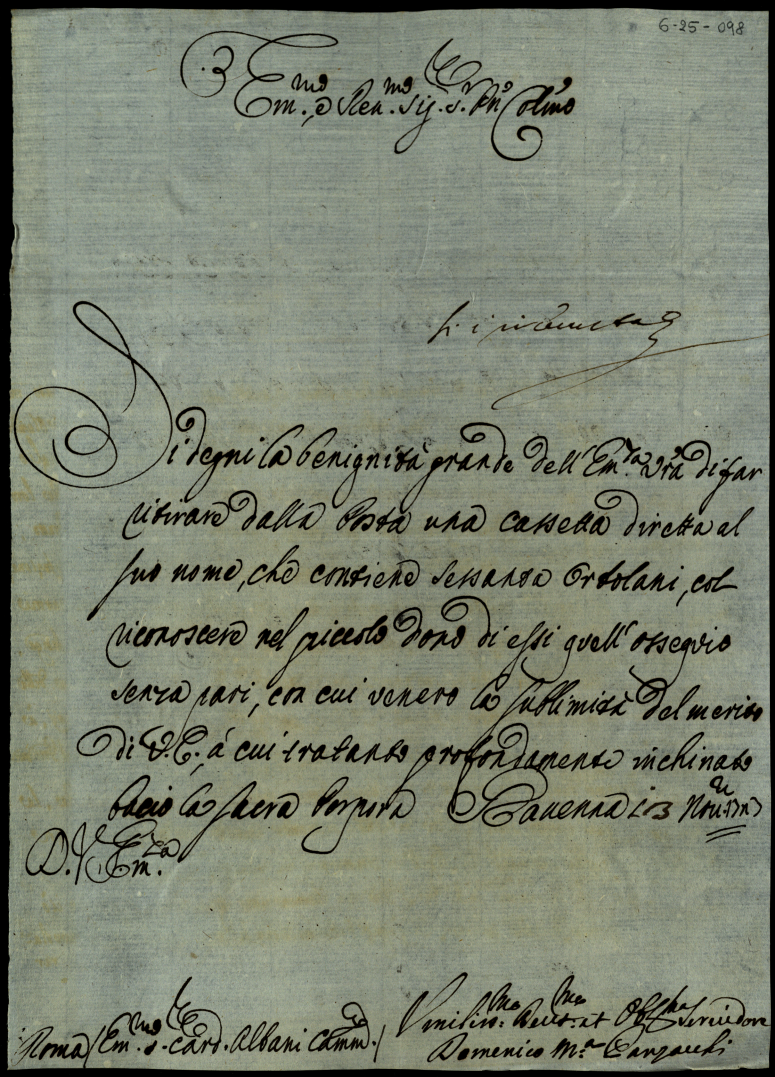 6-25-098
Em.mo e Rev.mo Sig.r
Si degni la benignità grande dell'Em.za Vra di far
ritirare dalla Posta una cassetta diretta al
suo nome, che contiene sessanta Ortolani, col
riconoscere nel piccolo dono di essi quell'ossequio
senza pari, con cui venero la sublimità del merito
di V.E., à cui tratanto profondamente inchinato
bacio la Sacra Porpora Ravenna
D. V. Em.za
Roma / Em.mo S.r Card. Albani Cam.
Umiliss.mo Obbl.mo Servidore
Domenico M.a